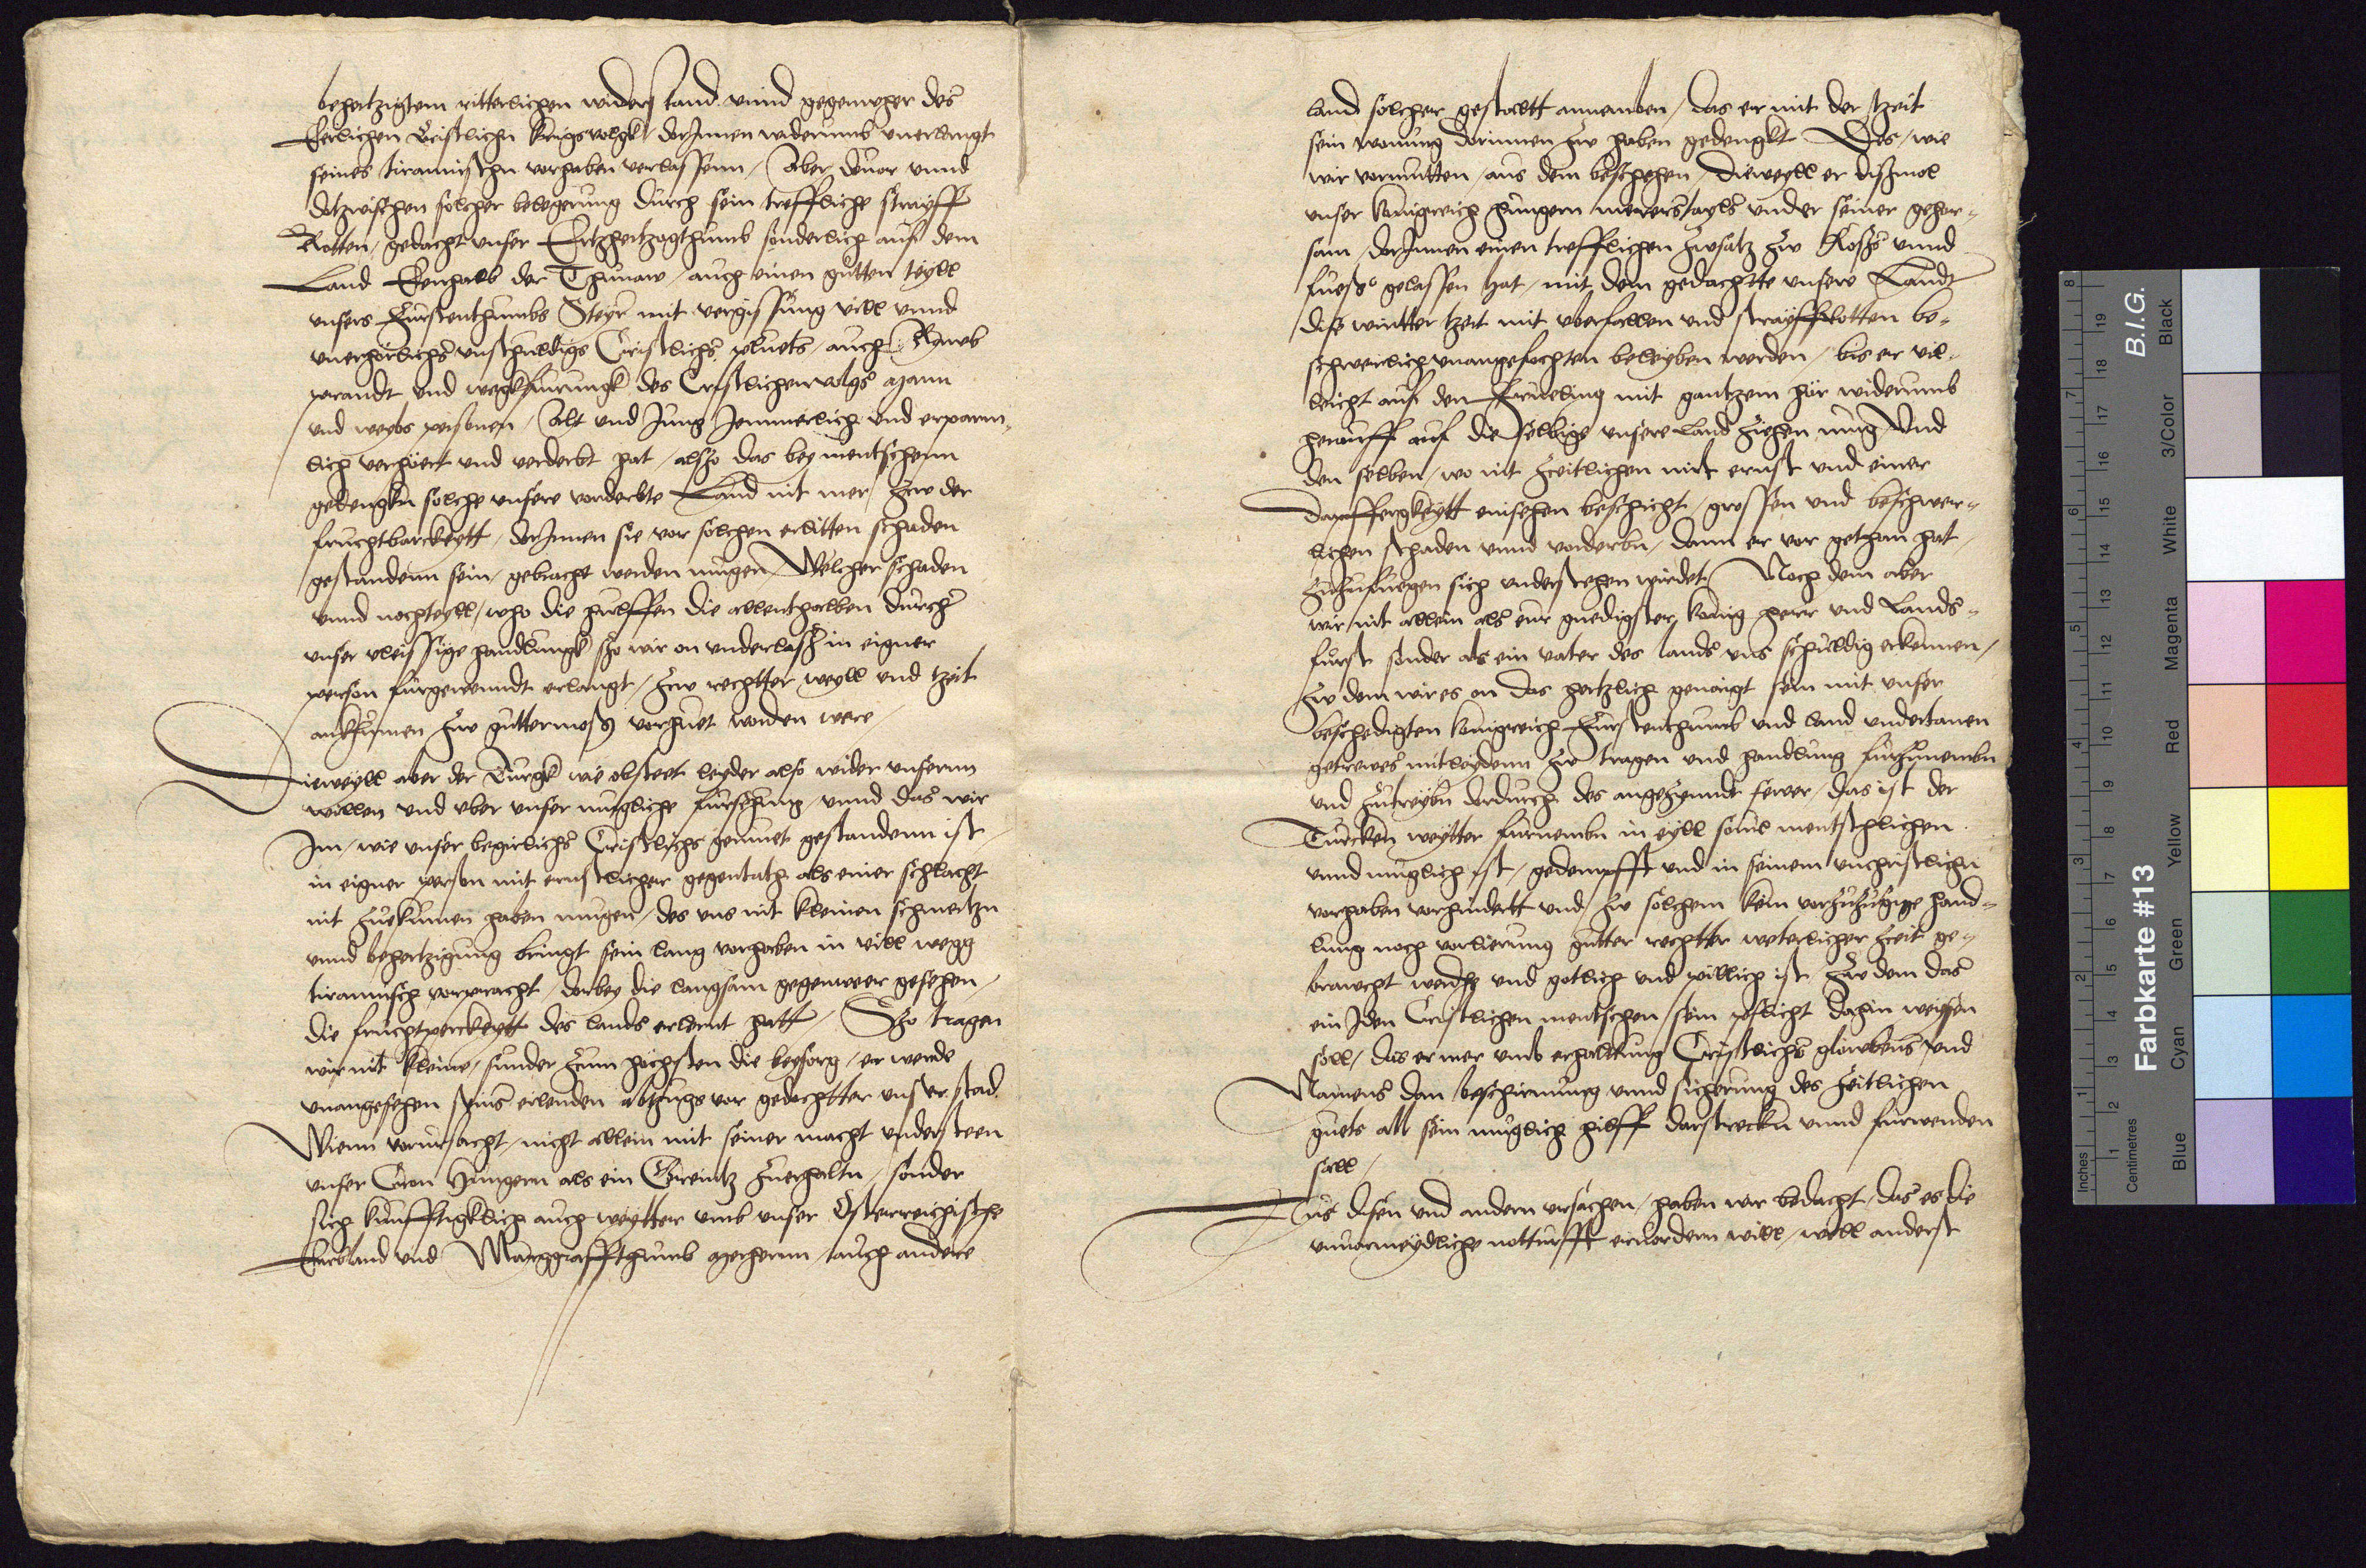 behertzigtem ritterlichen widerstand vnnd gegenwher des
Eerlichen Cristlichn kriegsvolgk dorJnnen widerumb vnerlangt
seines tirannischn vorhaben verlassenn / Aber deuor vnnd
dotzwischen solcher belegerung durch sein treffliche strayff
Rotten / gedacht vnser Ertzhertzogthumb sonderlich auf dem
Land Enhalb der Thunaw / auch einen gutten teyll
vnsers Furstenthumbs Steyr mit vergissung vill vnnd
vnerhörlichs vnschuldigs Cristlichs pluets / auch Rawb
prandt vnd wegkfurungk des Cristlichenvolgs mann
vnd weybs personen / Alt vnd Jung Jemmerlich vnd erparm-
lich verhört vnd verderbt hat / alßo das bey mentschenn
gedengkn solche vnsere vorderbte Land nit mer / Zw der
fruchtbarckeytt / dorJnnen sie vor solchen erlitten schaden
gestandenn sein / gebracht werden mugen / Welcher schaden
vnnd nochteyll / who die hulffen die allenthalben durch
vnser vleissige handlungk ßo wir on vnderlaß in eigner
person furgewenndt erlangt / Zw rechtter weyll vnd tzeit
ankhumen Zw guttermoß verhuet worden were /
Dieweyll aber der Turgk wie obsteet leyder also wider vnsernn
willen vnd vber vnser mugliche fursehung / vnnd das wir
Jm / wie vnser begirlichs Cristlichs gemuet gestandenn ist /
in eigner person mit ernstlicher gegentath als einer schlacht
nit Zuekumen haben mugen / des vns nit kleinen schmertzn
vnnd behertzigung bringt sein lang vorhaben in vill wegg
tirannisch vorpracht / dorbey die langsam gegenweer gesehen /
die fruchtperckeytt des lands erlernt hatt / SSo tragen
wir nit kleine / sunder Zum höchsten die beysorg / er werde
vnangesehen seins eilenden abtzugs vor gedochtter vnser stad
Wienn vorursacht / nicht allein mit seiner macht vndersteen
vnser Cron Hungern als ein Grenitz Zuerhaltn / sonder
sich kunfftigklich auch weytter vmb vnser Österreichische
Erbland vnd Marggraffthumb Merhernn / auch andere
land solcher gestalltt annemben / das er mit der tzeit
sein wonung dorinnen Zw haben gedengkt Des / wie
wir vormutten / aus dem beschehen / dieweyll er dißmol
vnser konigreich hungern merersteyls vnder seiner gehor-
sam / dorJnnen einen trefflichen Zwsatz Zw Roß vnnd
fueß gelassen hat / mit dem gedochtte vnsere Landt
diß wintter tzeit mit vberfallen vnd strayffRotten be-
schwerlich vnangefochten beleyben werden / bis er vil-
leicht auf den Fruheling mit gantzem hör widerumb
herauff auf die selbige vnsere Land Ziehen mug Vnd
den selben / wo nit Zeitlichen mit ernst vnd einer
Dapffergkeytt einsehen beschicht / grossen vnd beschwer-
lichen schaden vnnd vorderbn / dann er vor gethan hat
Zutzufuegen sich vnderstehen wirdet / Noch dem aber
wir nit allein als eur gnedigster konig herr vnd Lands-
furst sonder als ein vater des lands vns schuldig erkennen /
Zw dem wir es on das hertzlich genaigt sein mit vnser
beschedigten konigreich Furstenthumb vnd land vndertanen
getrewes mitleydenn Zw tragen vnd handlung furZunembn
vnd Zutreybn dordurch des angeZunndt fewer / das ist der
Turcken weytter furnembn in eyll souil mentschlichen
vnnd muglich ist / gedempfft vnd in seinem vnchristlichn
vorhaben vorhindertt vnd Zw solchem kein vorZuZugige hand-
lung noch vorlierung gutter rechtter weterlicher Zeit ge-
braucht werde vnd gotlich vnd pillich ist Zw dem das
ein Jden Cristlichen mentschen sein pflicht dohin weissen
soll / das er mer vmb erhalttung Cristlichs glawbens vnd
Namens dan beschirmung vnnd sicherung des Zeitlichen
guets all sein muglich hilff darstreckn vnnd furwenden
soll /
Aus disen vnd andern vrsachen / haben wir bedacht / das es die
vnuormeydliche notturfft erfordern will / woll anderst